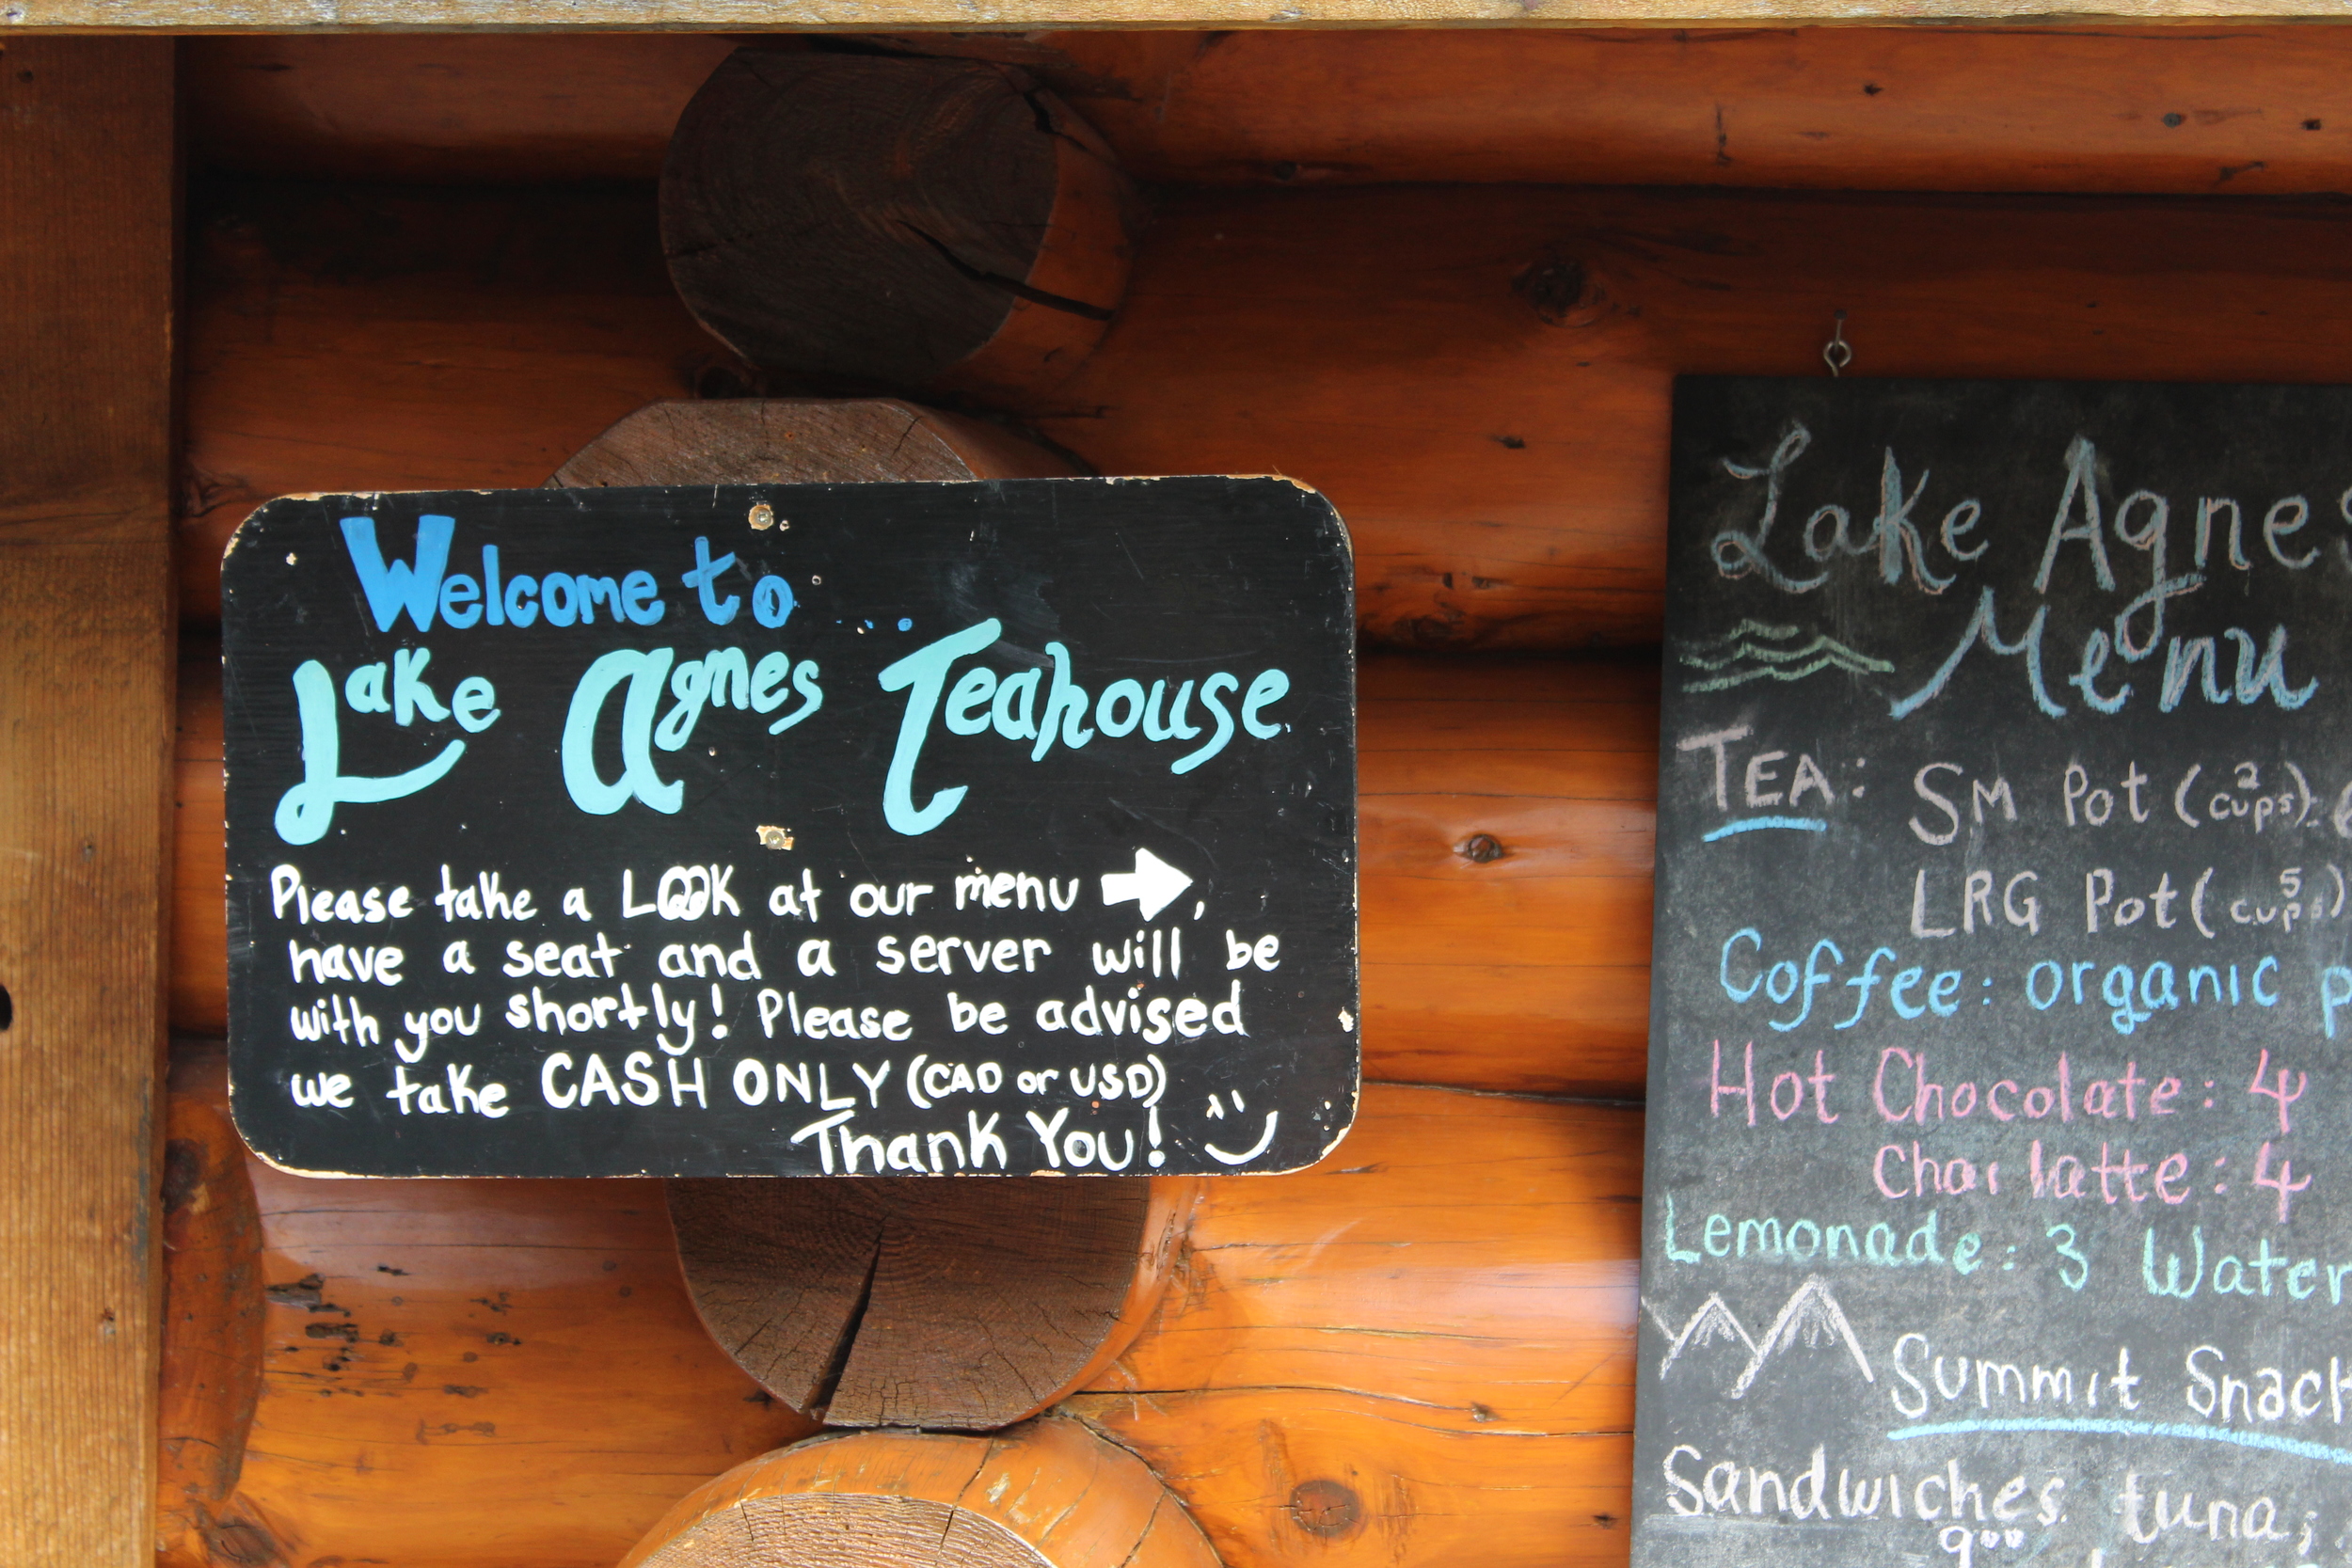 Welcome to ...
Lake Agnes Teahouse
Please take a LOOK at our menu ➡,
have a seat and a server will be
with you shortly! Please be advised
we take CASH ONLY (CAD or USD)
Thank You!
Lake Agnes
Menu
TEA: SM Pot (2 cups)
LRG Pot (5 cups)
Coffee: organic
Hot Chocolate: 4
Chai latte: 4
Lemonade: 3 Water
Summit Snack
Sandwiches tuna,
9⁰⁰